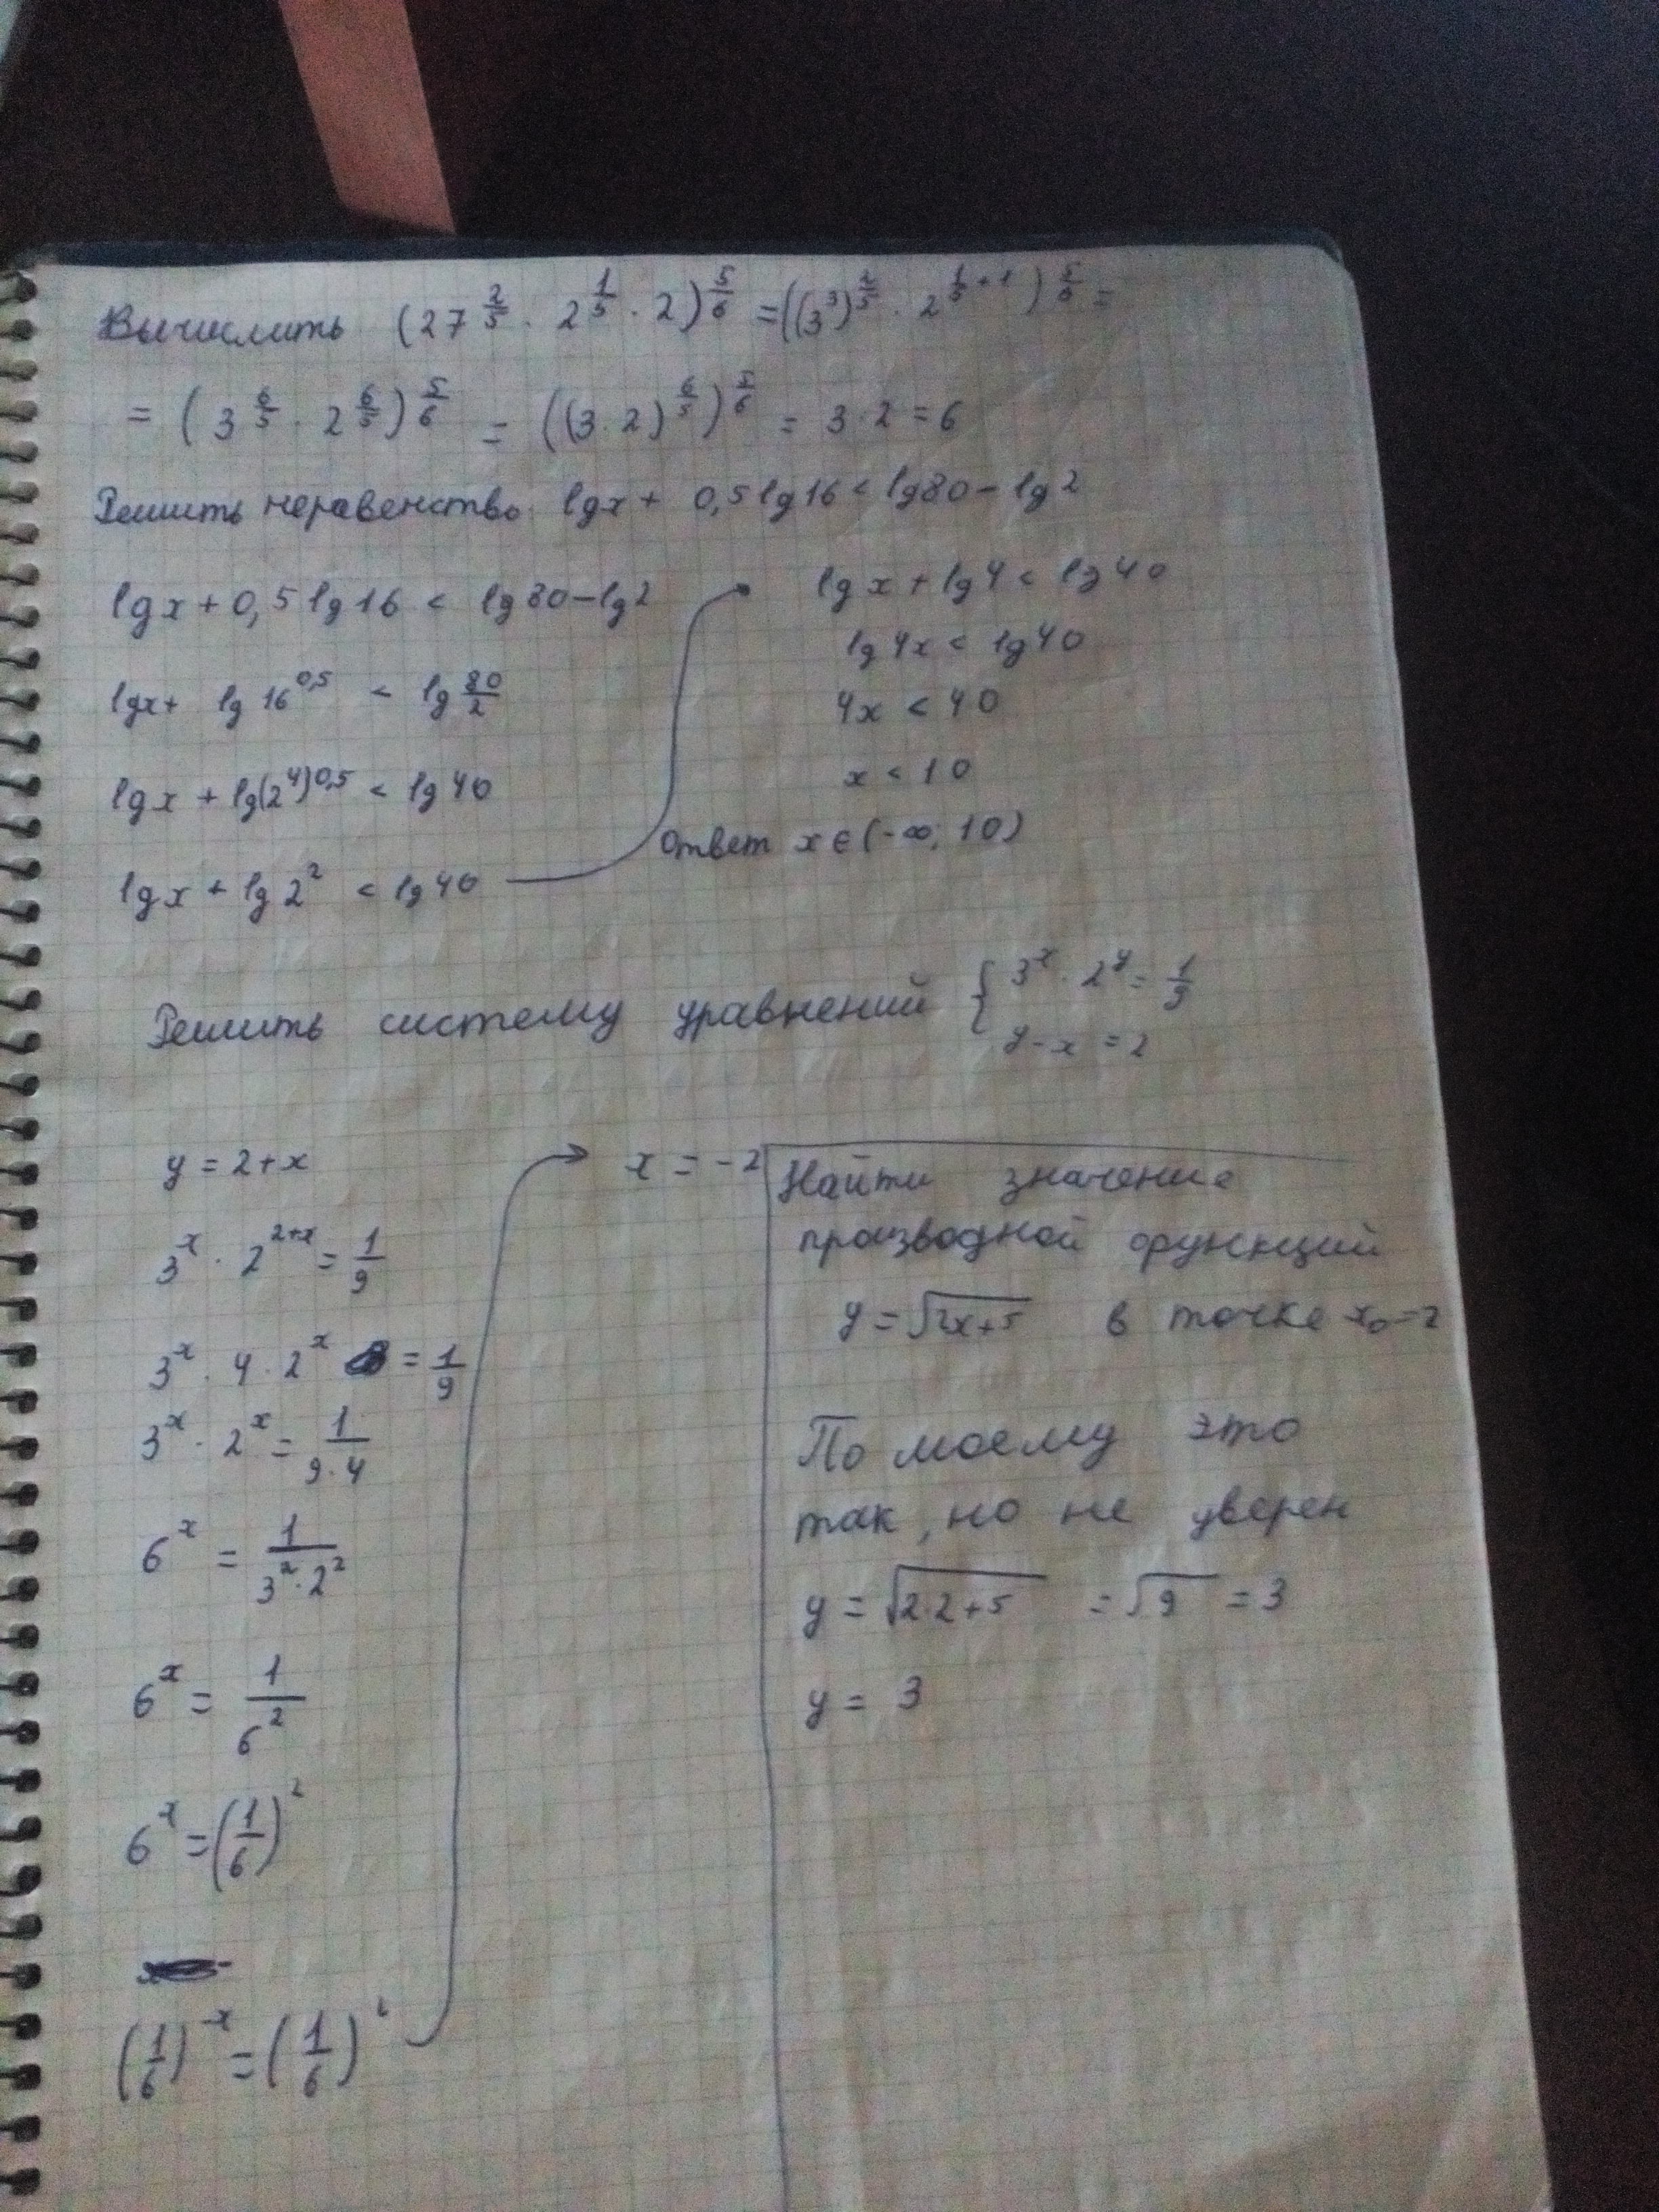 Вычислить (27^(2/5) · 2^(1/5) · 2)^(5/6) = ((3^3)^(2/5) · 2^(1/5 + 1))^(5/6) =
= (3^(6/5) · 2^(6/5))^(5/6) = ((3·2)^(6/5))^(5/6) = 3·2 = 6
Решить неравенство lgx + 0,5lg16 < lg80 - lg2
lgx + 0,5lg16 < lg80-lg2
lgx + lg16^0,5 < lg 80/2
lgx + lg(2^4)^0,5 < lg40
lgx + lg2^2 < lg40
lgx + lg4 < lg40
lg4x < lg40
4x < 40
x < 10
Ответ x ∈ (-∞; 10)
Решить систему уравнений { 3^x · 2^y = 1/9
y-x = 2
y = 2+x
3^x · 2^(2+x) = 1/9
3^x · 4 · 2^x = 1/9
3^x · 2^x = 1/(9·4)
6^x = 1/(3^2·2^2)
6^x = 1/6^2
6^x = (1/6)^2
(1/6)^-x = (1/6)^2
x = -2
Найти значение
производной функций
y = √(2x+5) в точке x₀=2
По моему это
так, но не уверен
y = √(2·2+5) = √9 = 3
y = 3